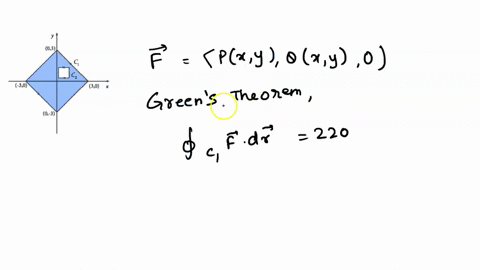 y
(0,3)
C₁
C₂
(-3,0)
(3,0)
x
(0,-3)
F⃗ = ⟨P(x,y), Q(x,y), 0⟩
Green's Theorem,
∮_C₁ F⃗·dr⃗ = 220